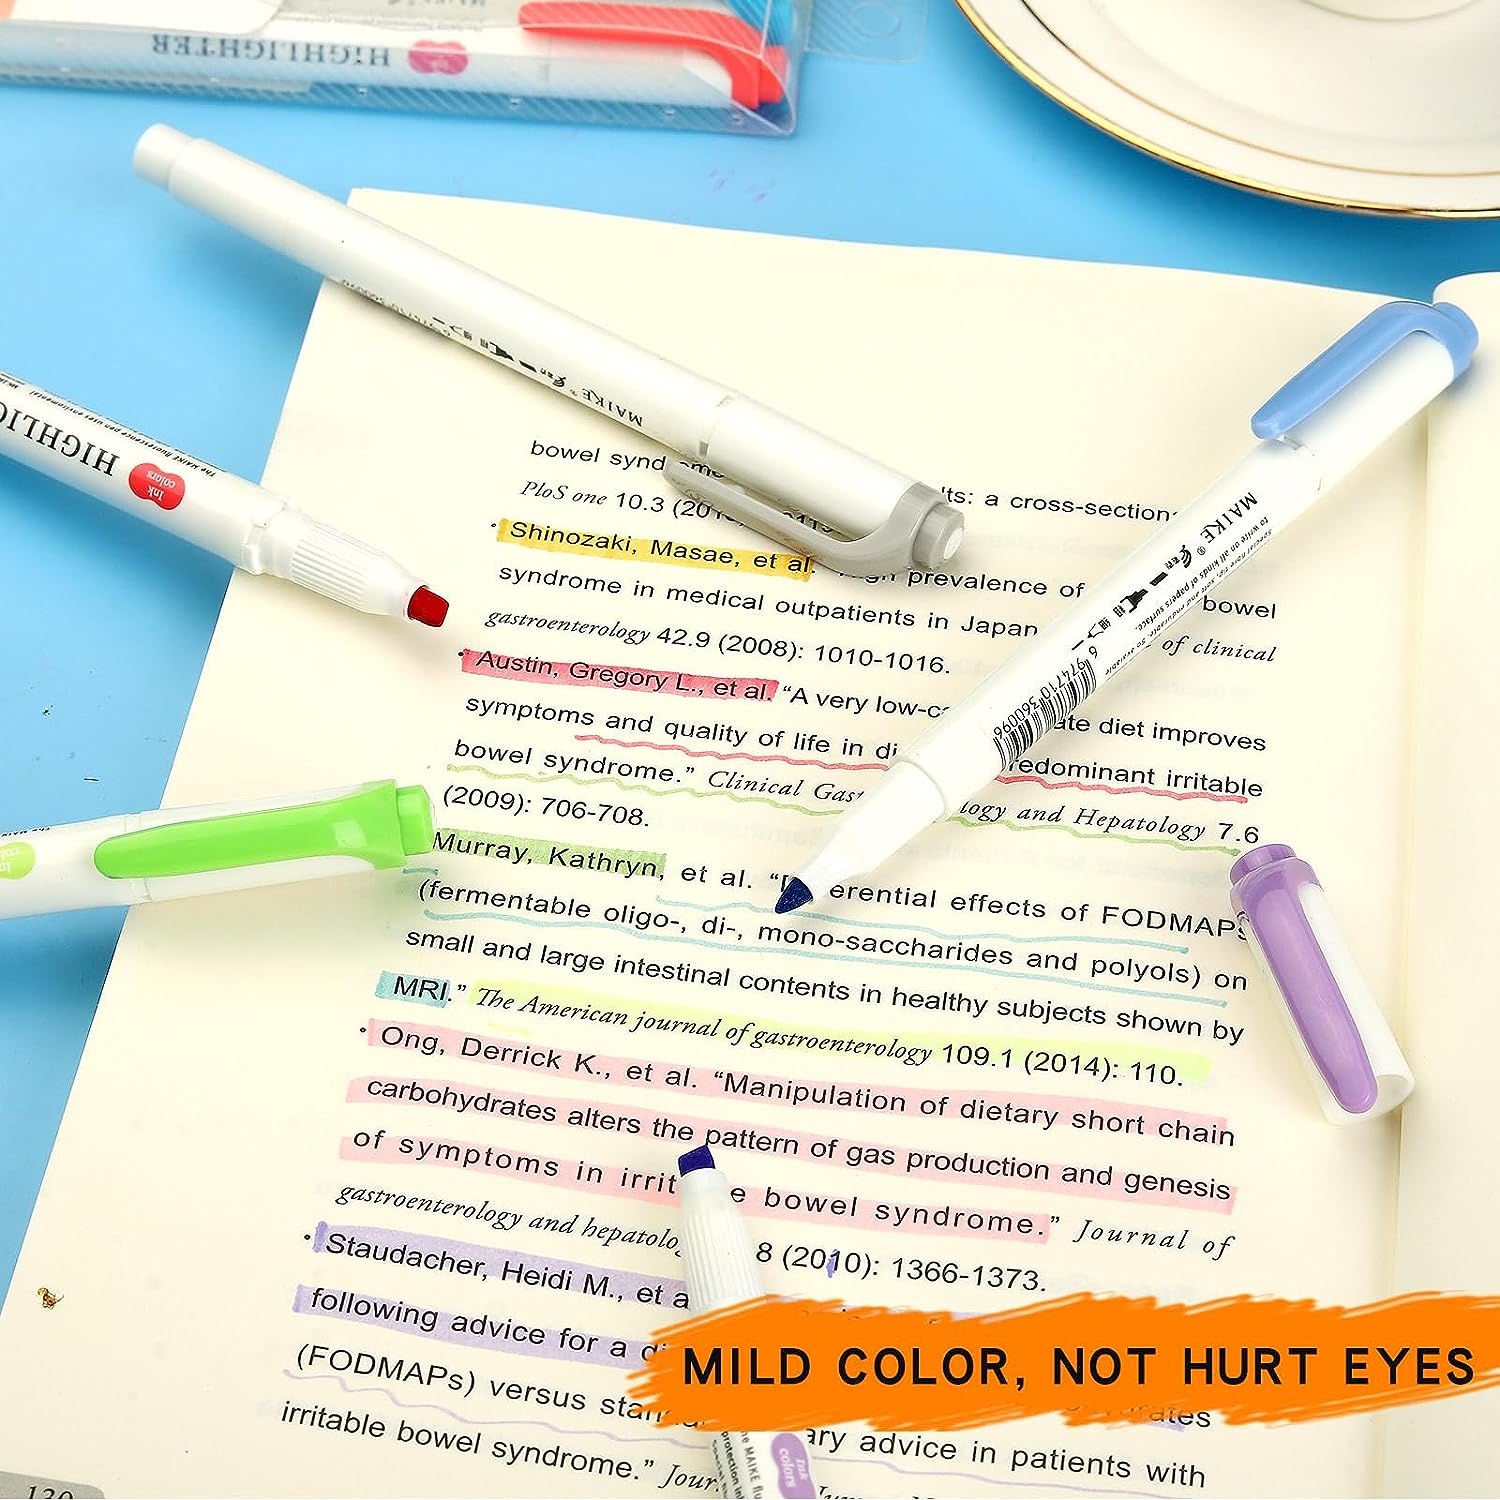 HiGHLiGHTER
MAIKE
HIGHLIG
Ink
colors
The MAIKE fluorescence pen uses envinmental
MAIKE
Special fibre tip, soft and endurable. So available
to write on all kinds of papers surface.
6 974710 360096
bowel synd
lts: a cross-section
PloS one 10.3 (20
Shinozaki, Masae, et al.
prevalence of
bowel
syndrome in medical outpatients in Japan
of clinical
gastroenterology 42.9 (2008): 1010-1016.
Austin, Gregory L., et al. “A very low-ca
ate diet improves
symptoms and quality of life in di
redominant irritable
bowel syndrome.” Clinical Gas
logy and Hepatology 7.6
(2009): 706-708.
Murray, Kathryn, et al. “D
erential effects of FODMAPs
(fermentable oligo-, di-, mono-saccharides and polyols) on
small and large intestinal contents in healthy subjects shown by
MRI.” The American journal of gastroenterology 109.1 (2014): 110.
Ong, Derrick K., et al. “Manipulation of dietary short chain
carbohydrates alters the pattern of gas production and genesis
of symptoms in irrit
e bowel syndrome.” Journal of
gastroenterology and hepatolog
8 (2010): 1366-1373.
Staudacher, Heidi M., et a
following advice for a
(FODMAPs) versus stan
ary advice in patients with
irritable bowel syndrome.” Jour
Ink
colors
130
MILD COLOR, NOT HURT EYES